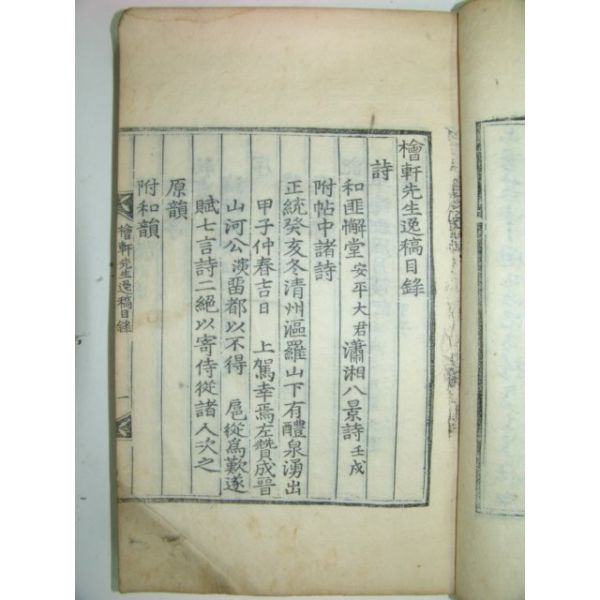 檜軒先生逸稿目錄
詩
和匪懈堂安平大君瀟湘八景詩壬戌
附帖中諸詩
正統癸亥冬清州漚羅山下有醴泉湧出
甲子仲春吉日 上駕幸焉左贊成晉
山河公演留都以不得 扈從為歎遂
賦七言詩二絕以寄侍從諸人次之
原韻
附和韻
檜軒先生逸稿目錄 一